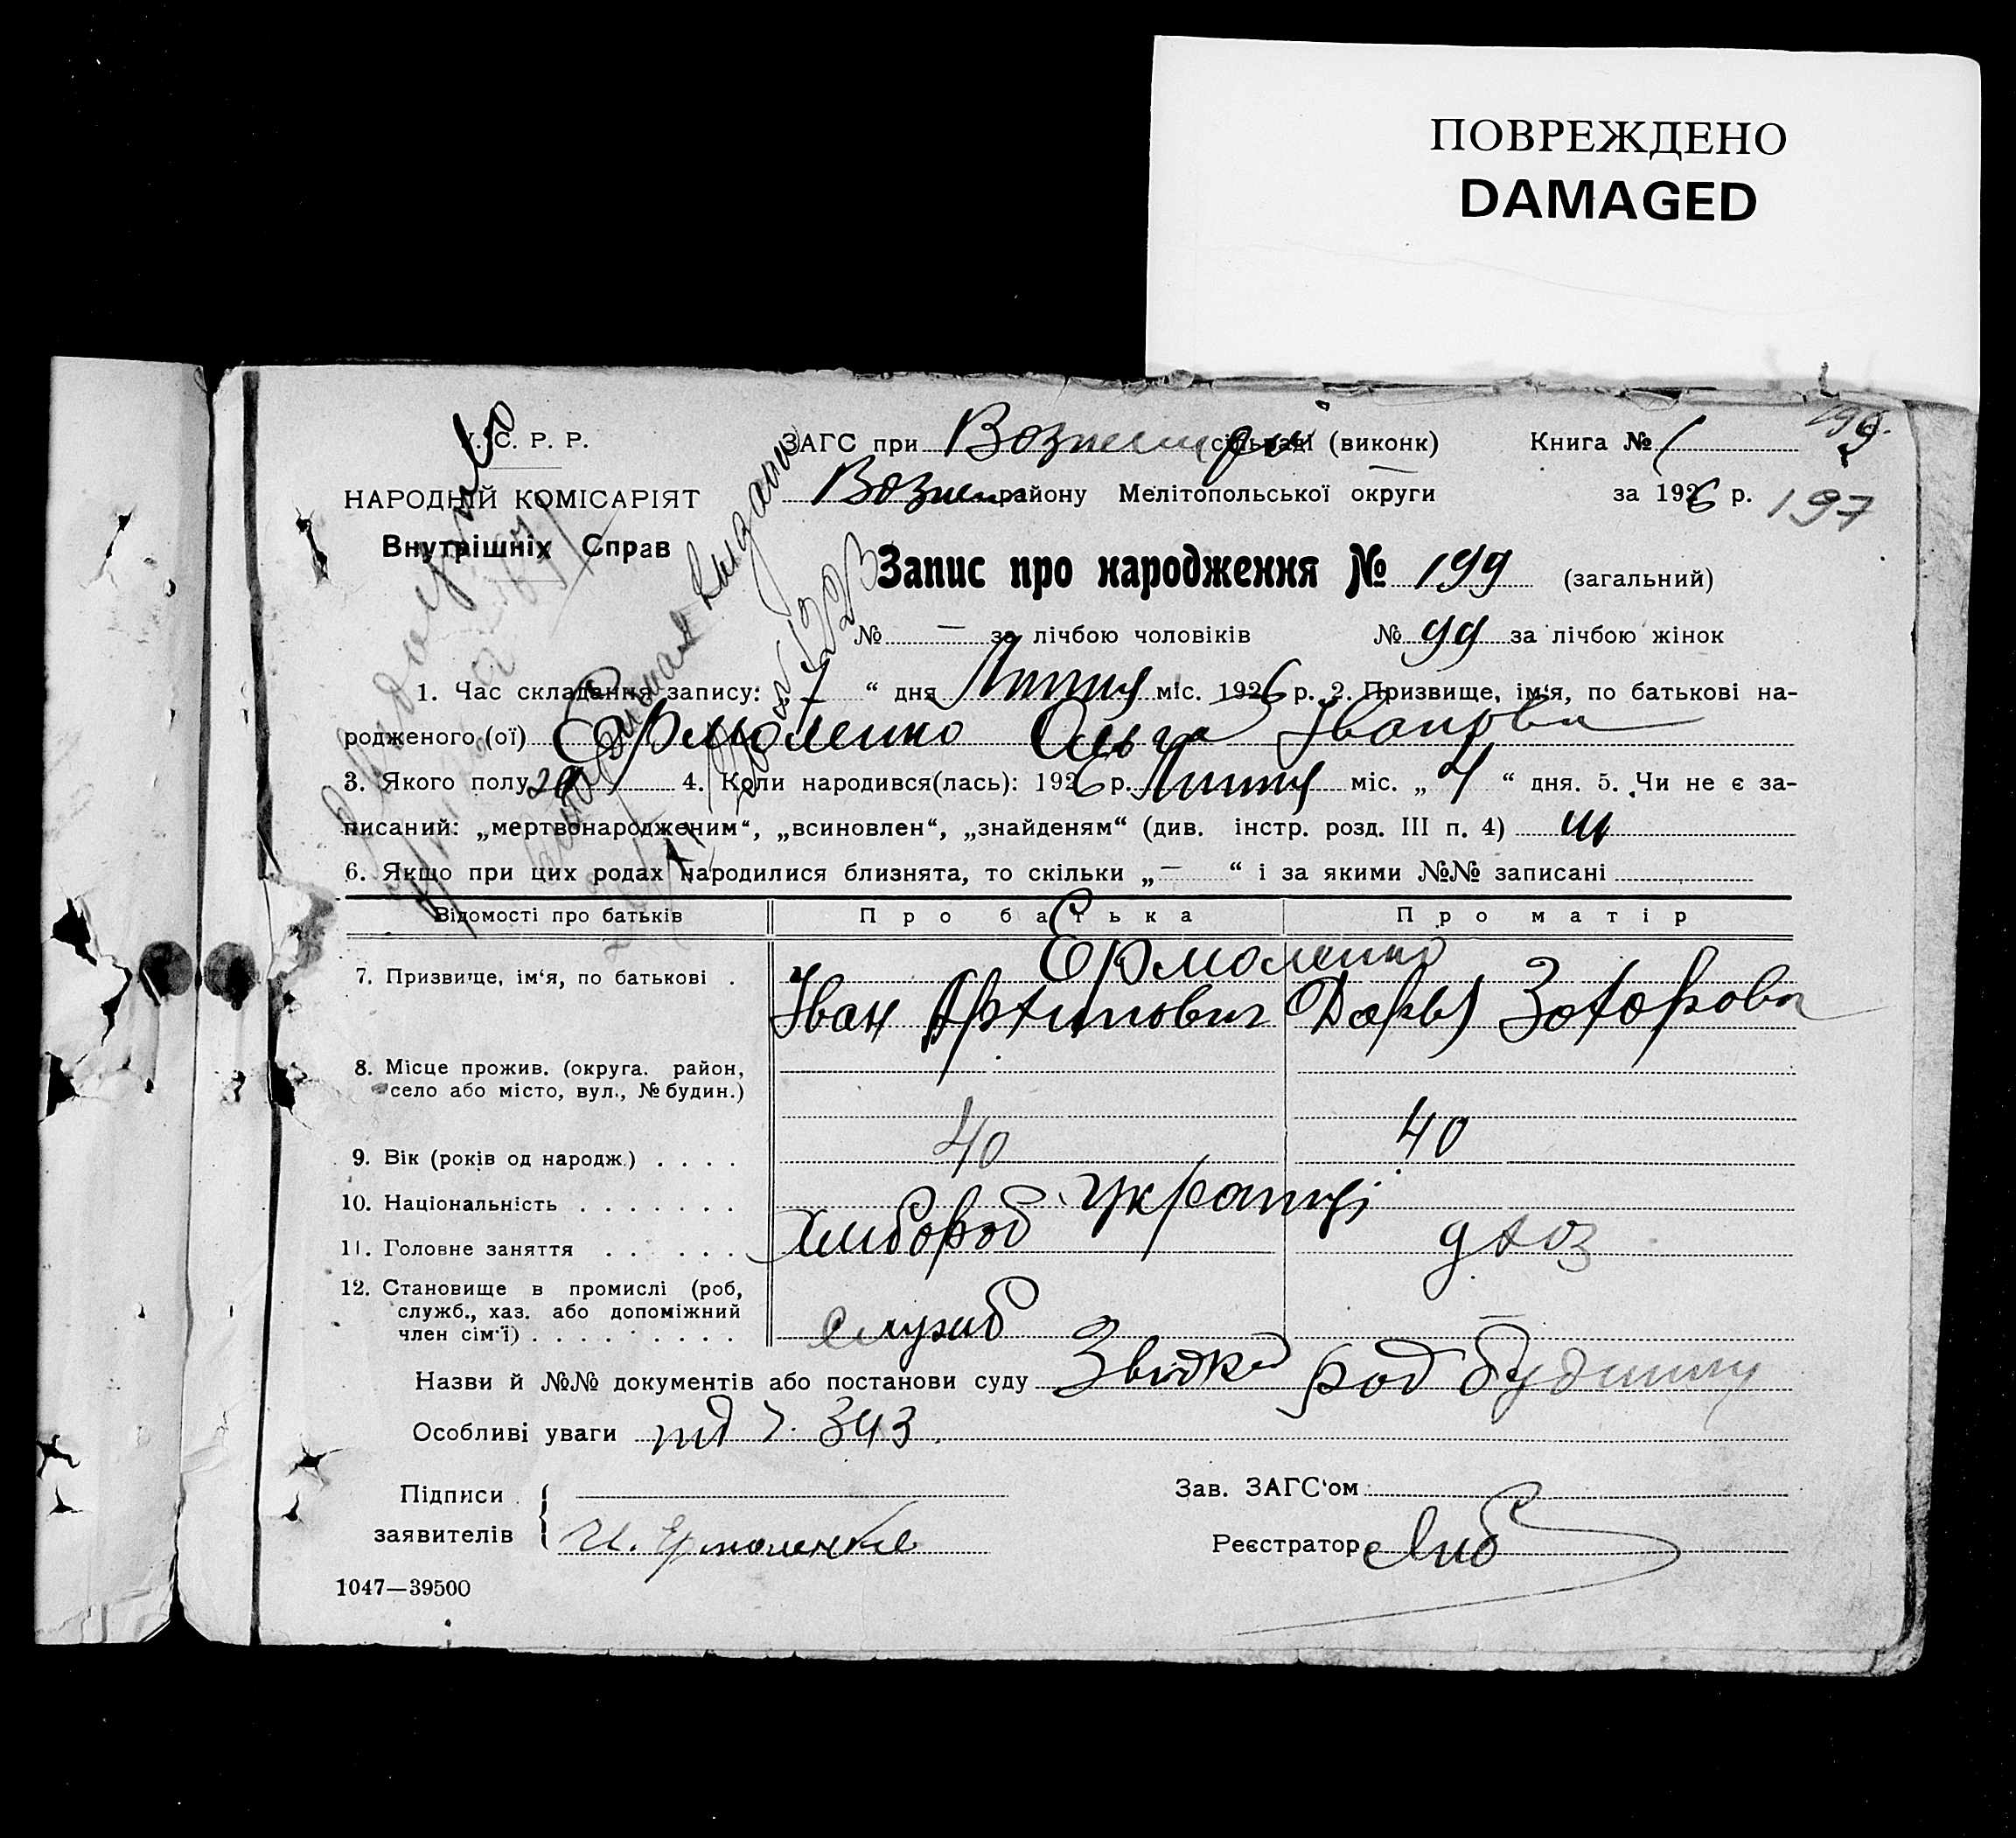 ПОВРЕЖДЕНО
DAMAGED
У. С. Р. Р.
НАРОДНІЙ КОМІСАРІЯТ
Внутрішніх Справ
ЗАГС при сільраді (виконк) Книга № 1
Вознес району Мелітопольської округи за 1926 р.
199
197
Запис про народження № 199 (загальний)
№ — за лічбою чоловіків № 99 за лічбою жінок
1. Час складання запису: 7 “ дня Липня міс. 1926 р. 2. Призвище, ім‘я, по батькові на-
родженого (ої) Єрмоленко Ольга Іванівна
3. Якого полу 4. Коли народився(лась): 1926 р. Липня міс. „ 4 “ дня. 5. Чи не є за-
писаний: „мертвонародженим“, „всиновлен“, „знайденям“ (див. інстр. розд. III п. 4) ні
6. Якщо при цих родах народилися близнята, то скільки „ — “ і за якими №№ записані
Відомості про батьків Про батька Про матір
7. Призвище, ім‘я, по батькові . Єрмоленко
Іван Архипович Дарья Захарова
8. Місце прожив. (округа. район,
село або місто, вул., № будин.)
9. Вік (років од народж.) . . . . 40 40
10. Національність . . . . . . . Українці
11. Головне заняття . . . . . . Хлибороб дхоз
12. Становище в промислі (роб,
служб., хаз. або допоміжний
член сім‘ї) . . . . . . . . . служб —
Назви й №№ документів або постанови суду Звідка род будинку
Особливі уваги під ч. 343.
Підписи
заявителів И. Ермоленко
Зав. ЗАГС‘ом
Реєстратор
1047—39500